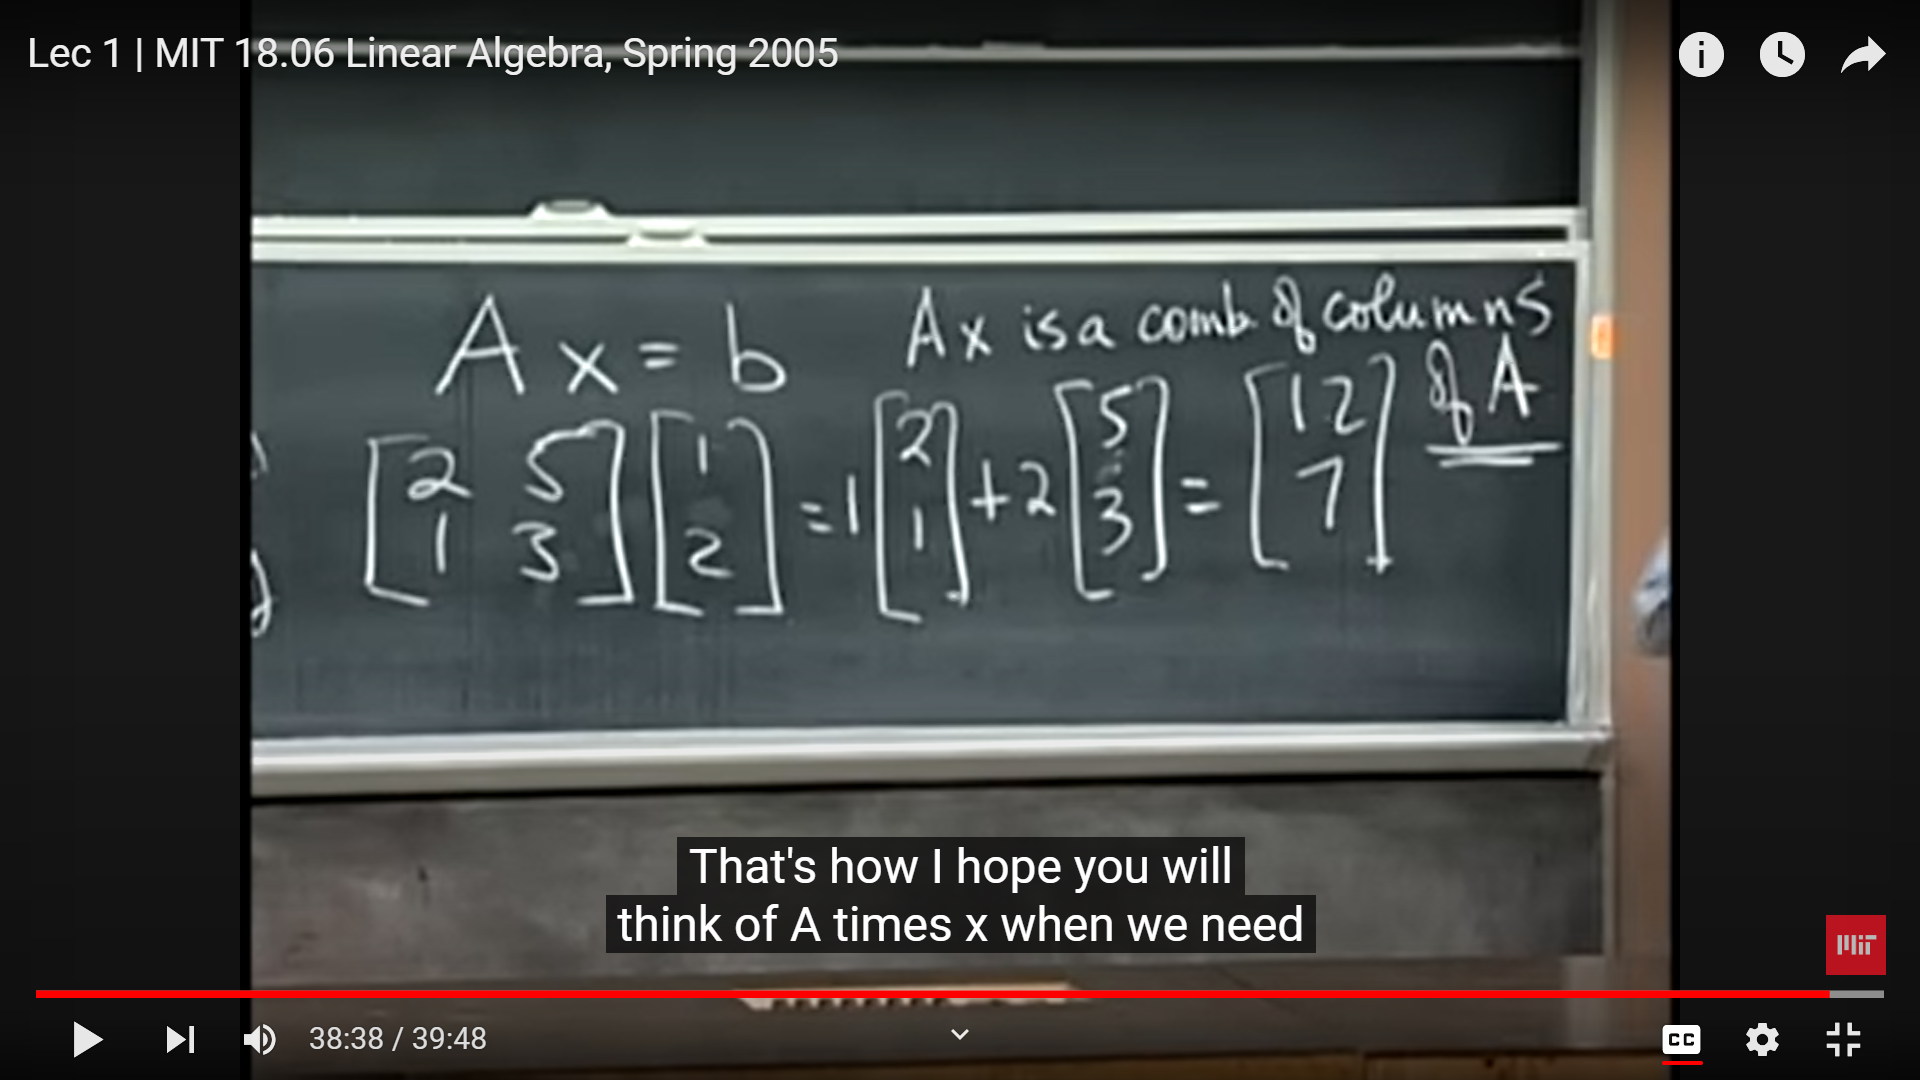 Lec 1 | MIT 18.06 Linear Algebra, Spring 2005
A x = b
Ax is a comb. of columns
of A
[2 5] [1] = 1 [2] + 2 [5] = [12]
[1 3] [2] [1] [3] [7]
That's how I hope you will
think of A times x when we need
MIT
38:38 / 39:48
CC